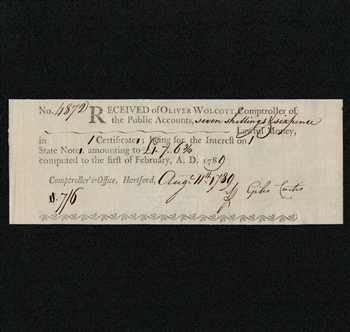 No. 4872 RECEIVED of OLIVER WOLCOTT, Comptroller of
the Public Accounts, seven shillings & sixpence
Lawful Money,
in 1 Certificate; being for the Interest on
State Note amounting to £
computed to the first of February, A. D. 1789
Comptroller's-Office, Hartford, Augt 11th 1789
7/6 Giles Curtis